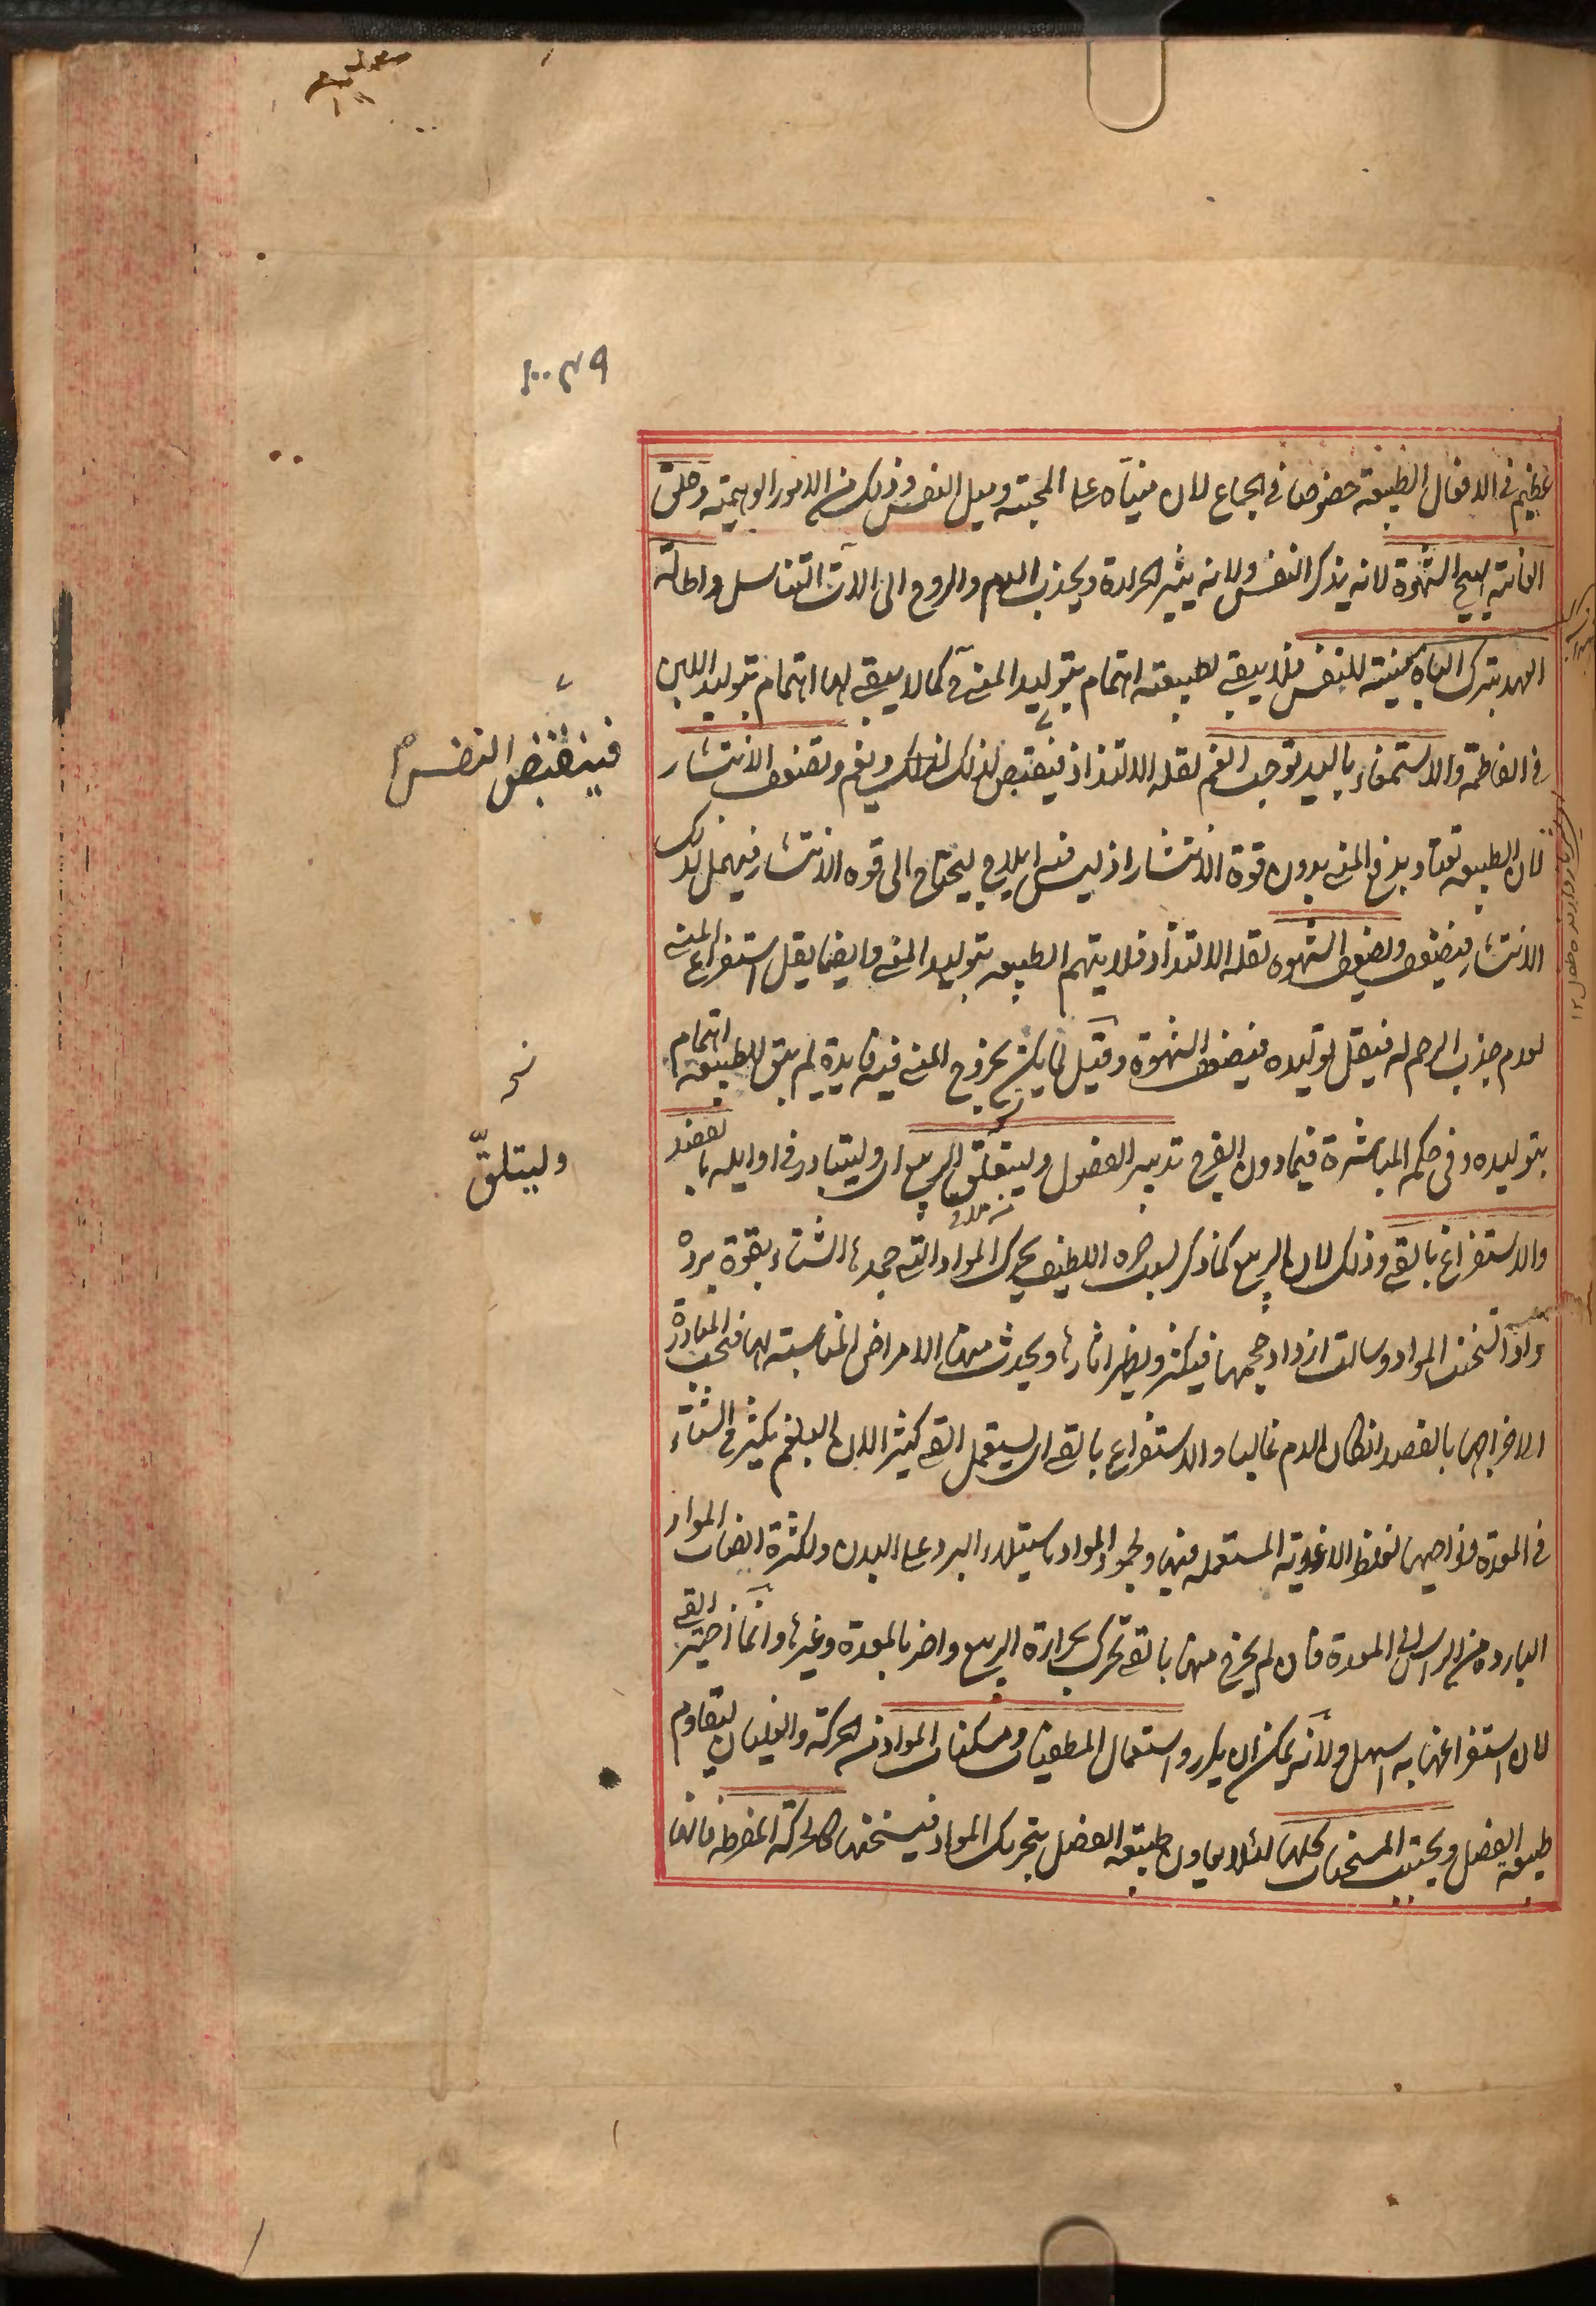 عظيم في الافعال الطبيعة خصوصا في الجماع لان مبناه على المحبته وميل النفس وذلك من الامور الوهمية وحلق
العانة يهيج الشهوة لانه يذكر النفس ولانه يثير الحرارة ويجذب الدم والروح الى الات التناسل واطالة
العهد بترك الباه منسية للنفس فلا يبقى لطبيعته اهتمام بتوليد المني كما لا يبقى لها اهتمام بتوليد اللبن
في الفاطمة والاستمناء باليد توجب الغم لقلة الالتذاذ فينقبض لذلك ويغم وتضعف الانتشار
لان الطبيعة تعتاد بدفع المني بدون قوة الانتشار اذ ليس فيه ايلاج ليحتاج الى قوة الانتشار فيهمل لذلك
الانتشار فيضعف ويضعف الشهوه لقلة الالتذاذ فلا يتهم الطبيعة بتوليد المني وايضا يقل استفراغ المني
لعدم جذب الرحم له فيقل توليده فيضعف الشهوة وقيل لما يكن بخروج المني فيه فايدة لم يبق للطبيعة اهتمام
بتوليده وفي حكم المباشرة فيما دون الفرج تدبير الفصول وليتعلق الربيع اى وليتبادر في اوايله بالفصد
والاستفراغ بالقي وذلك لان الربيع كما ذكر بحره اللطيف يحرك المواد التي جمدها الشتاء بقوة برده
واذا سخنت المواد وسالت ازداد حجمها فيكثر ويظهر اثارها ويحدث منها الامراض المناسبة لها فيجب المبادرة
الاخراجها بالفصد انكان الدم غالبا والاستفراغ بالقي اى يستعمل القي كثيرا لان البلغم يكثر في الشتاء
في المعدة ونواحيها لغلظ الاغذية المستعمله فيها ولجمود المواد باستيلاء البرد على البدن ولكثرة انصباب المواد
الباردة من الراس الى المعدة فان لم يخرج منها بالقي تحرك بحرارة الربيع واضر بالمعدة وغيرها وانما اختير القي
لان استفراغها به اسهل ولانه يمكن ان يكرر واستعمال المطفيات ومسكنات المواد من الحركة والغليان ليقاوم
طبيعة الفصل ويجتنب المسخنات كلها لئلا يعاون طبيعة الفصل بتحريك المواد فيسخنها كالحركة المفرطه فانها
فينقبض النفس
وليتلقّ